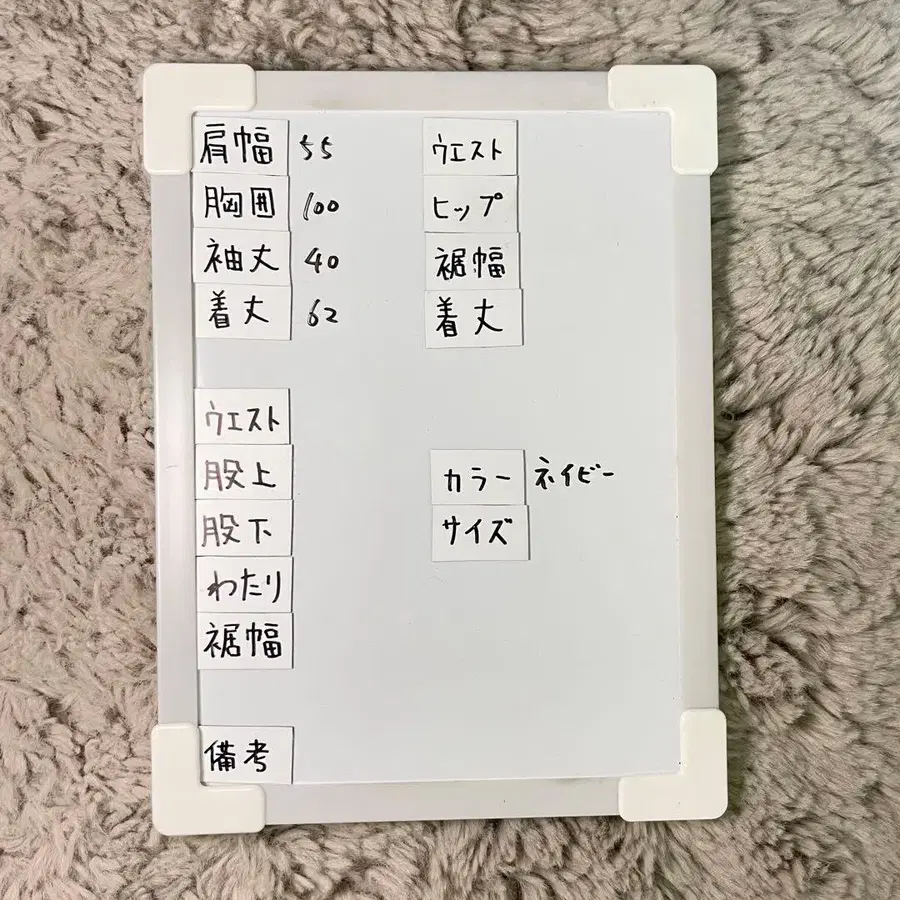 肩幅 55
胸囲 100
袖丈 40
着丈 62
ウエスト
股上
股下
わたり
裾幅
備考
ウエスト
ヒップ
裾幅
着丈
カラー ネイビー
サイズ